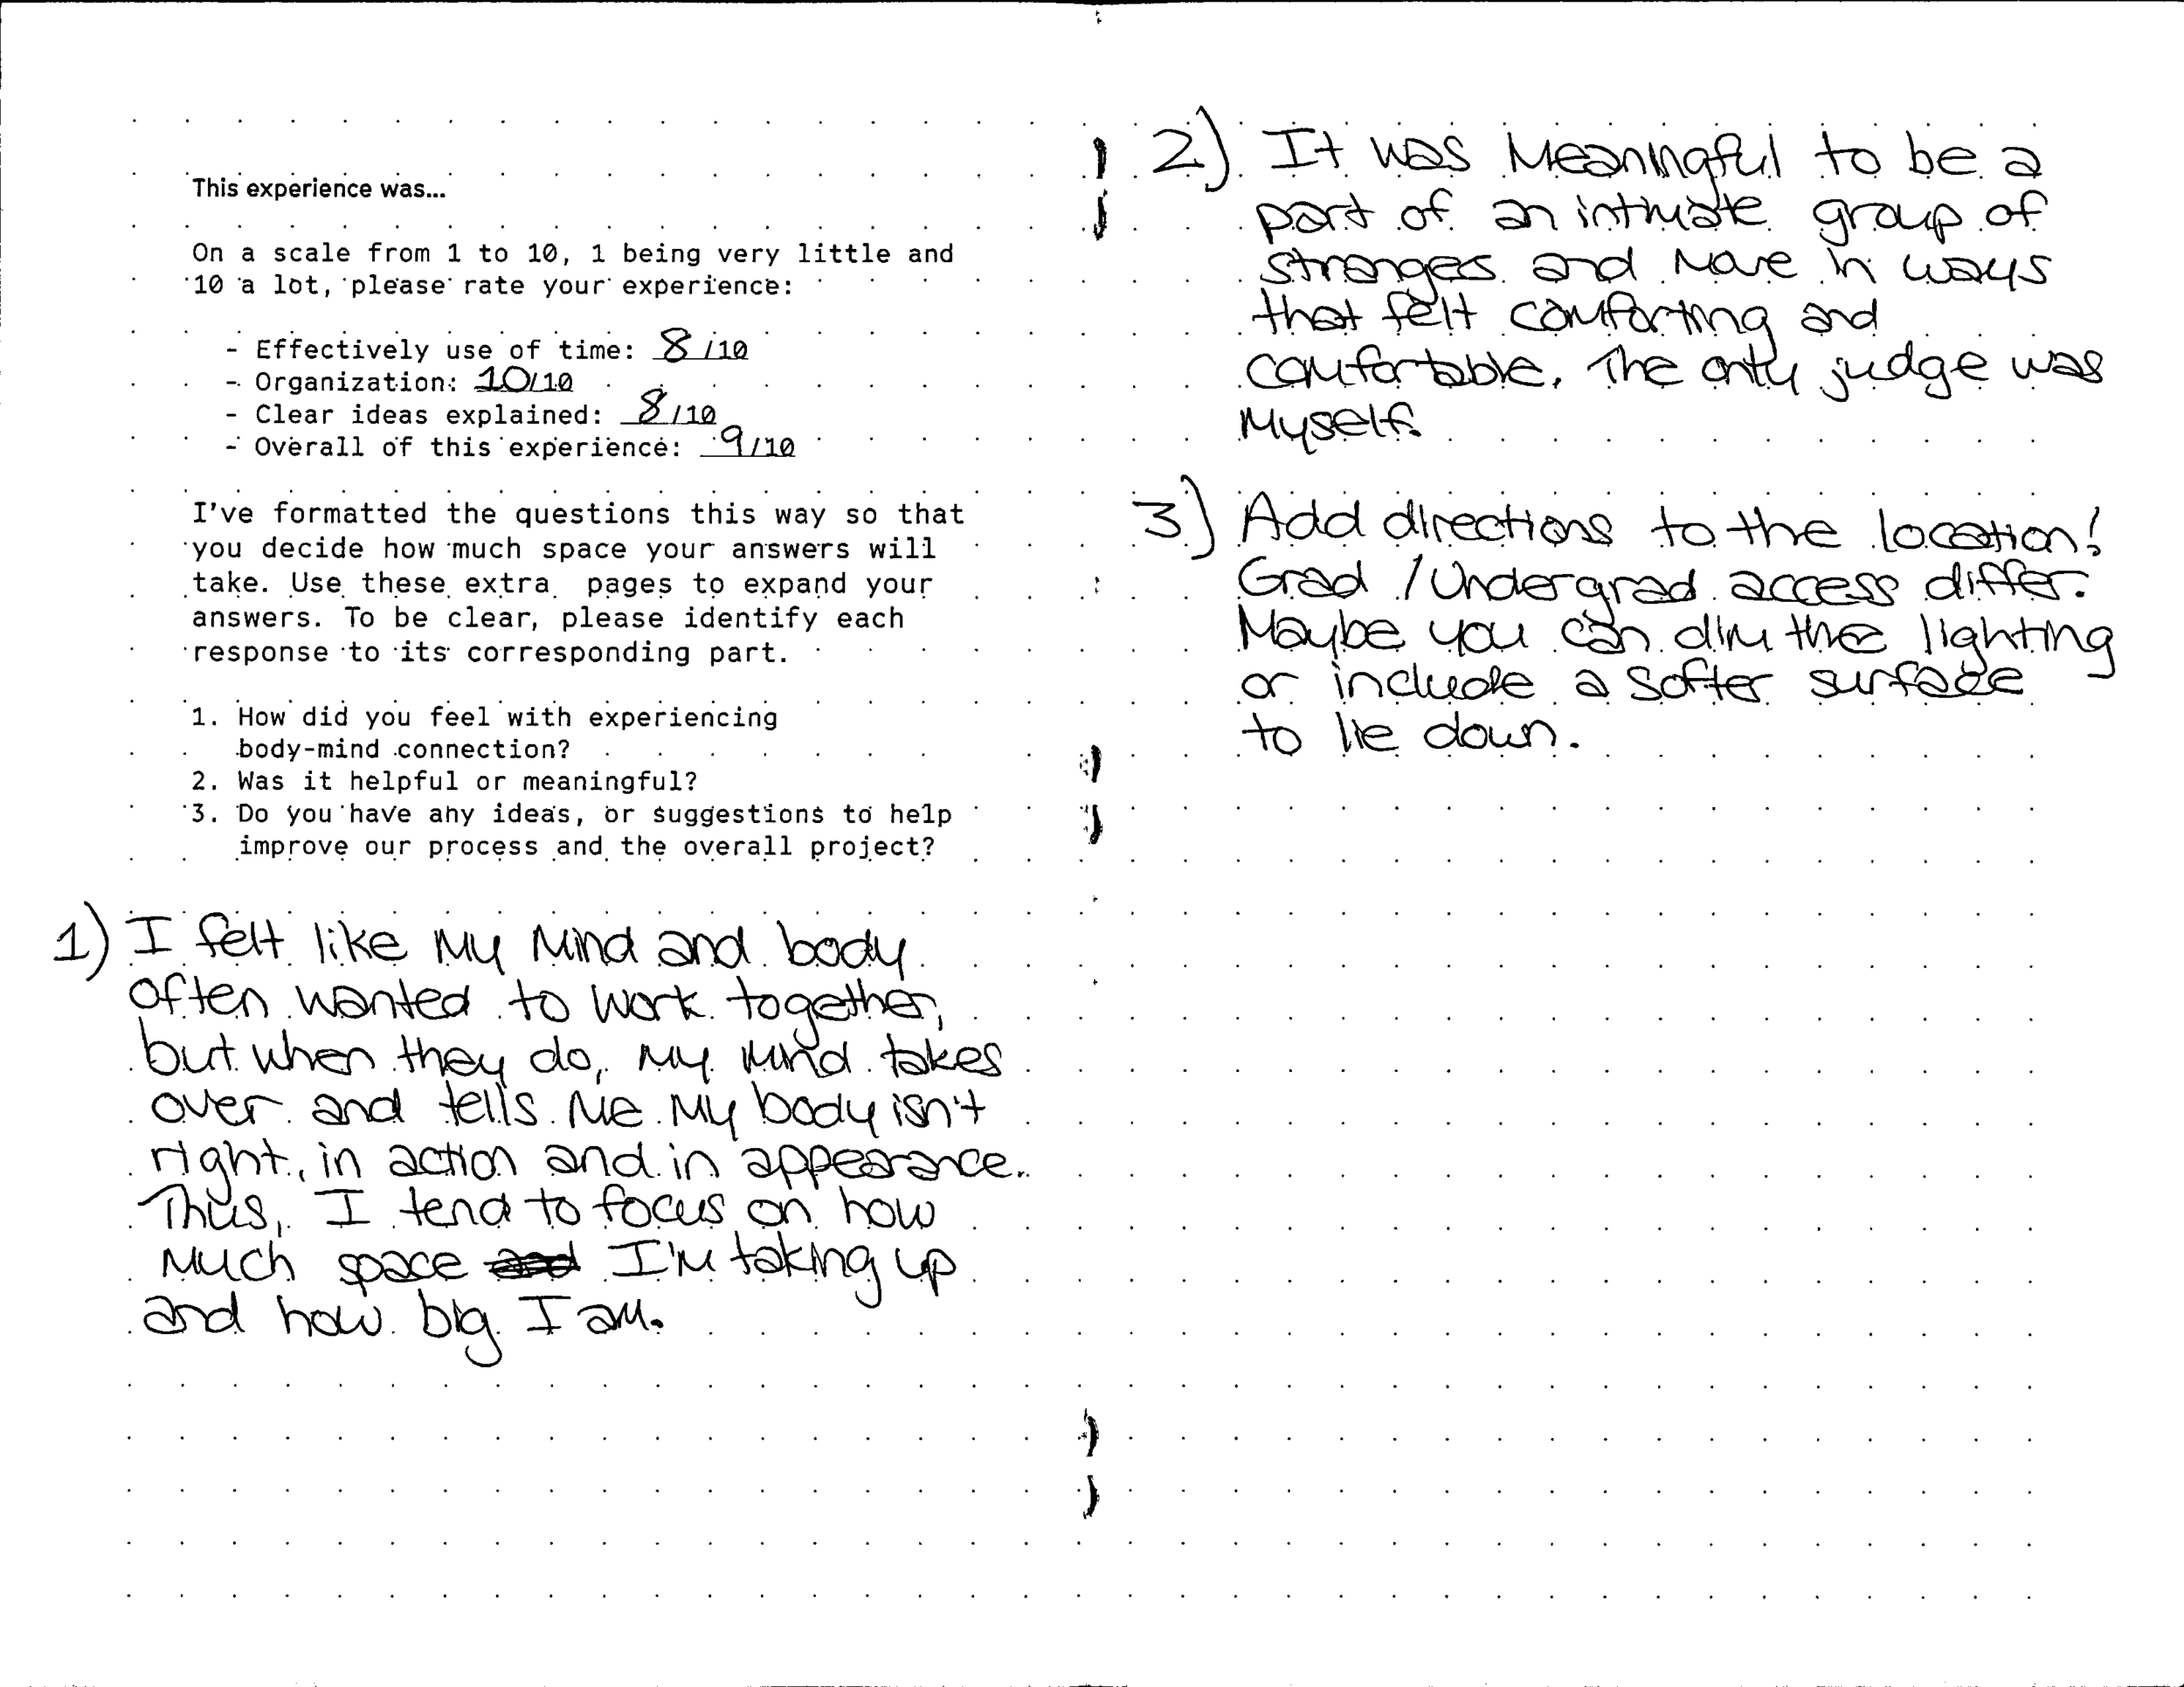 This experience was...
On a scale from 1 to 10, 1 being very little and
10 a lot, please rate your experience:
- Effectively use of time: 8/10
- Organization: 10/10
- Clear ideas explained: 8/10
- Overall of this experience: 9/10
I've formatted the questions this way so that
you decide how much space your answers will
take. Use these extra pages to expand your
answers. To be clear, please identify each
response to its corresponding part.
1. How did you feel with experiencing
body-mind connection?
2. Was it helpful or meaningful?
3. Do you have any ideas, or suggestions to help
improve our process and the overall project?
1) I felt like my mind and body
often wanted to work together,
but when they do, my mind takes
over and tells me my body isn't
right, in action and in appearance.
Thus, I tend to focus on how
much space I'm taking up
and how big I am.
2) It was meaningful to be a
part of an intimate group of
stranges and move in ways
that felt comforting and
comfortable. The only judge was
myself.
3) Add directions to the location!
Grad / Undergrad access differ.
Maybe you can dim the lighting
or include a softer surface
to lie down.